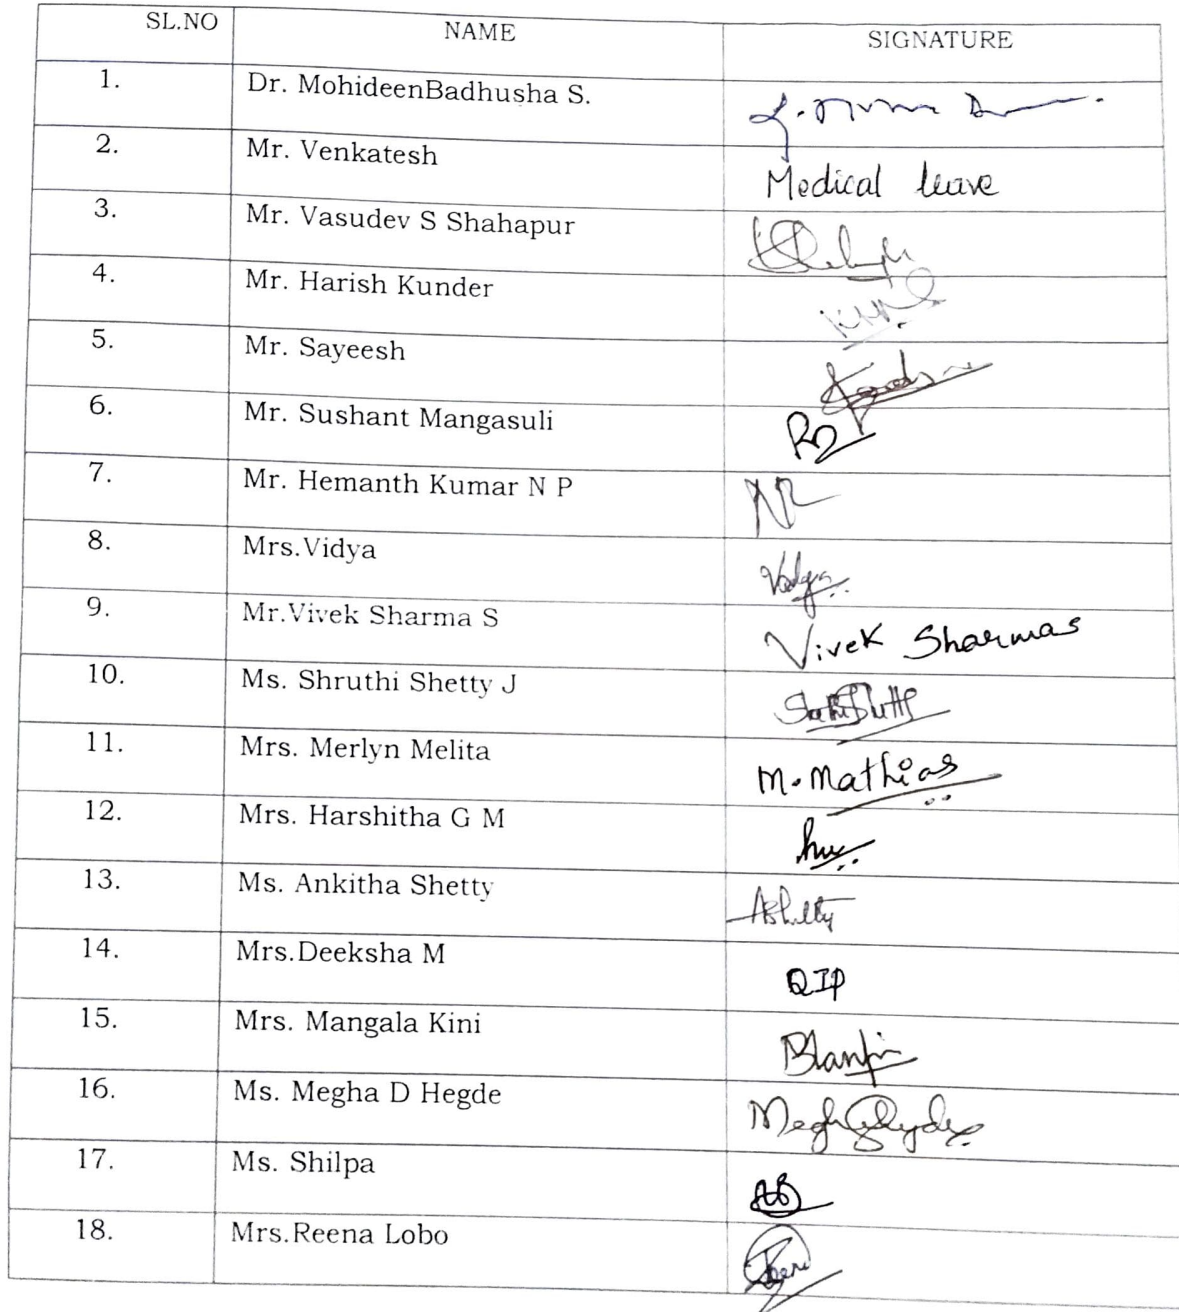 SL.NO NAME SIGNATURE
1. Dr. MohideenBadhusha S.
2. Mr. Venkatesh Medical leave
3. Mr. Vasudev S Shahapur
4. Mr. Harish Kunder
5. Mr. Sayeesh
6. Mr. Sushant Mangasuli
7. Mr. Hemanth Kumar N P
8. Mrs.Vidya Vidya
9. Mr.Vivek Sharma S Vivek Sharmas
10. Ms. Shruthi Shetty J
11. Mrs. Merlyn Melita M. Mathias
12. Mrs. Harshitha G M
13. Ms. Ankitha Shetty AShetty
14. Mrs.Deeksha M QIP
15. Mrs. Mangala Kini
16. Ms. Megha D Hegde
17. Ms. Shilpa
18. Mrs.Reena Lobo